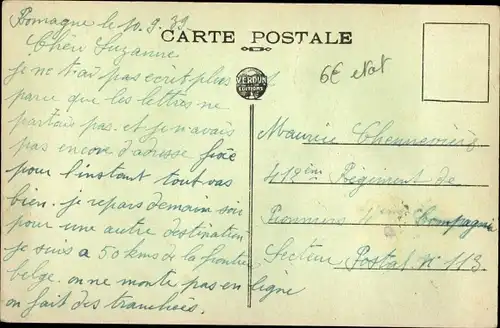 Romagne le 10.9.39
CARTE POSTALE
Chère Suzanne
6€
je ne t'ai pas écrit plus
VERDUN
EDITIONS
parce que les lettres ne
partais pas. et je n'avais
pas encore d'adresse fixe
pour l'instant tout vas
bien. je repars demain soir
pour une autre destination
je suis a 50 kms de la frontière
belge. on ne monte pas en ligne
on fait des tranchées.
Maurice
412ème Régiment de
Pionniers 4ème Compagnie
Secteur Postal N° 113